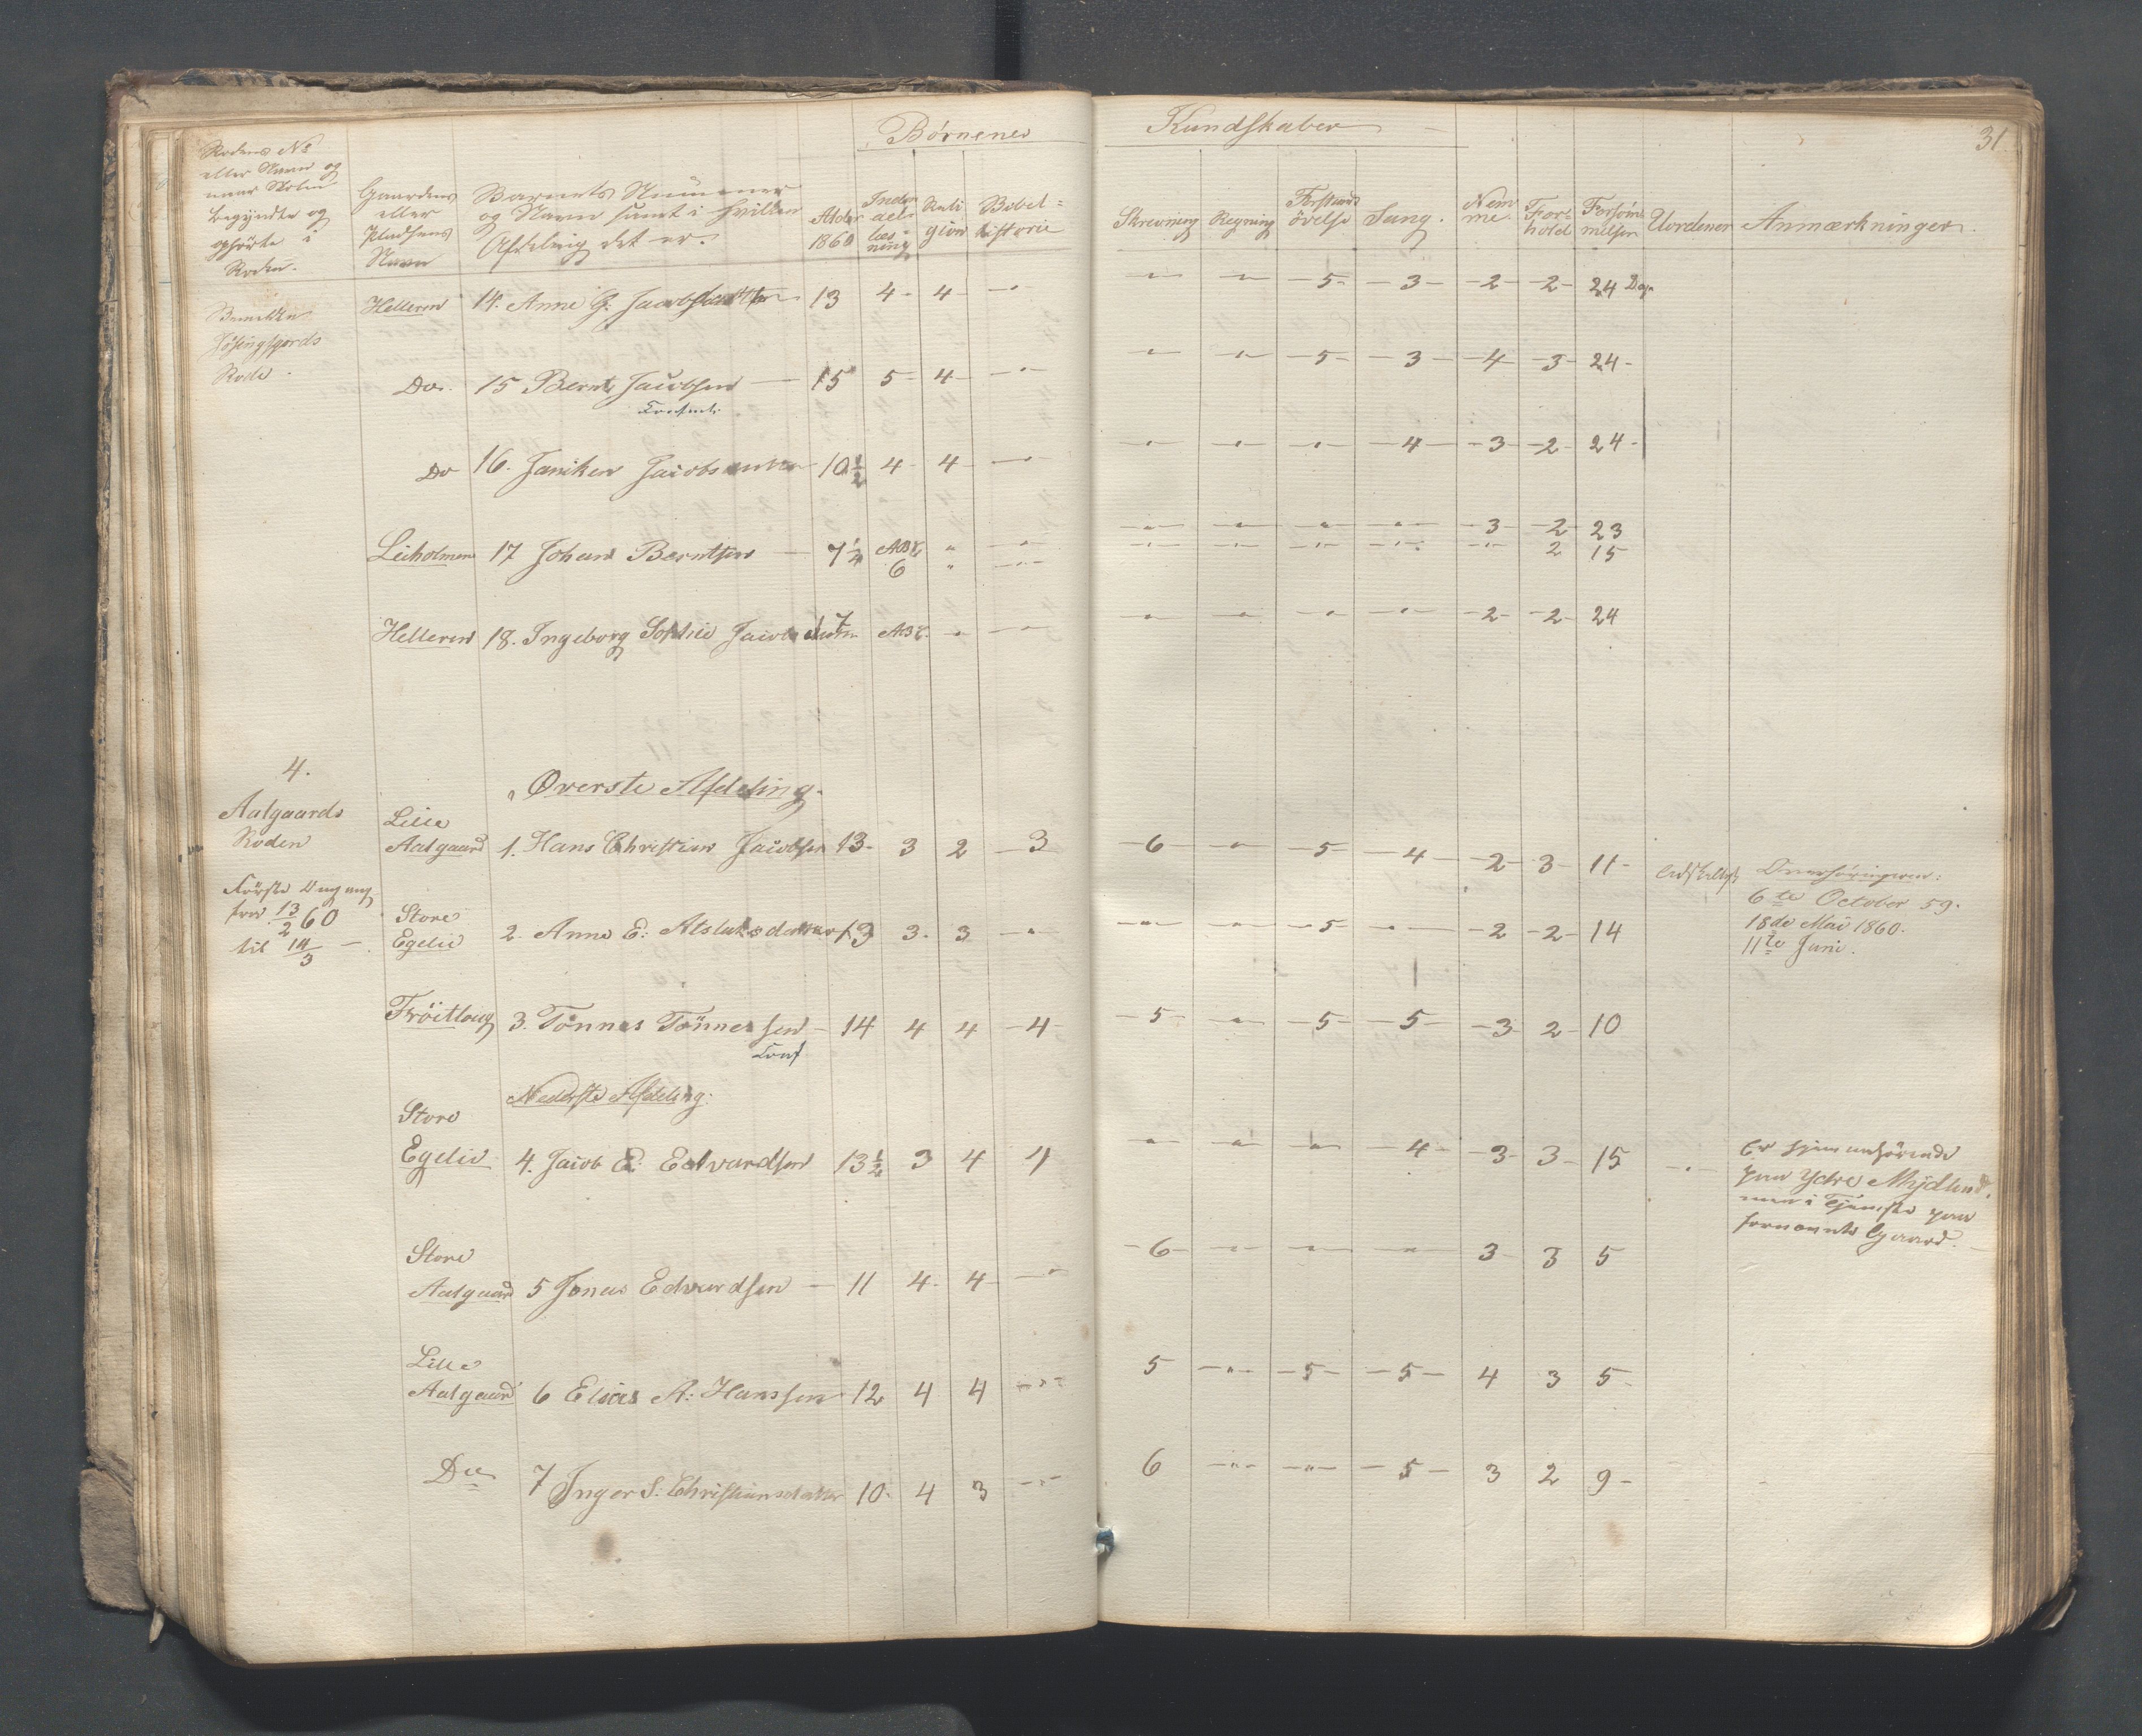 31.
Børnenes Kundskaber
Rodens No
eller Navn og
naar Skolen
begyndte og
ophørte i
Roden.
Gaardens
eller
Pladsens
Navn
Barnets Nummer
og Navn samt i hvilken
Afdeling det er.
Alder
1860
Inden
ads
læs-
ning
Reli
gion
Bibel=
historie
Skrivning
Regning
Forstands
övelse
Sang.
Nem
me.
For-
hold
Forsöm
melser
Uordener
Anmærkninger.
Jøsingfjords
Rode.
Helleren 14. Anne G: Jacobsdatter 13 4 4 - " - " - " -5- -3- -2- -2- 24 Dage
Do. 15 Bernt Jacobsen 15 5 4 - " - " - " -5- -3- -4- -3- 24-
Do 16. Janiken Jacobsdatter 10½ 4 4 - " - " - " - " -4- -3- -2- 24-
Leiholmen 17 Johan Berntsen 7¼ ABC " " " " " " -3- -2- 23
6 " " " " " " " 2 15
Helleren 18. Ingeborg Sophie Jacobsdatter 7 ABC " " " " " " -2- -2- 24
4.
Aalgaards
Roden
Første Omgang
fra 13/2 60
til 14/3 -
Øverste Afdeling.
Lille
Aalgaard 1. Hans Christian Jacobsen 13- 3 2 -3 -6- " -5- -4- -2- 3- 11-
Overhøringerne:
6te October 59.
18de Mai 1860.
11te Juni.
Store
Egelie 2. Anne E: Atslaksdatter 13 3. 3 " " " -5 " -2 -2- 14
Frøitloug 3. Tönnes Tönnessen - 14 4 4 -4- -5- " -5- -5- -3- 2- 10
Conf
Nederste Afdeling:
Store
Egelie 4. Jacob E: Edvardsen 13½ 3 4 4 " " " -4- -3- 3- 15 "
Er hjemmehørende
paa Ydre Mydland,
men i Tjeneste paa
fornævnte Gaard.
Store
Aalgaard 5 Jonas Edvardsen - 11 4. 4 - " -6- " " " 3- 3 5
Lille
Aalgaard 6 Elias A: Hanssen 12 4 4 " 5 " -5- -5- 4 3 5-
Do 7 Inger S: Christiansdatter 10. 4 3 " 6 " " -5- 3 2 9-